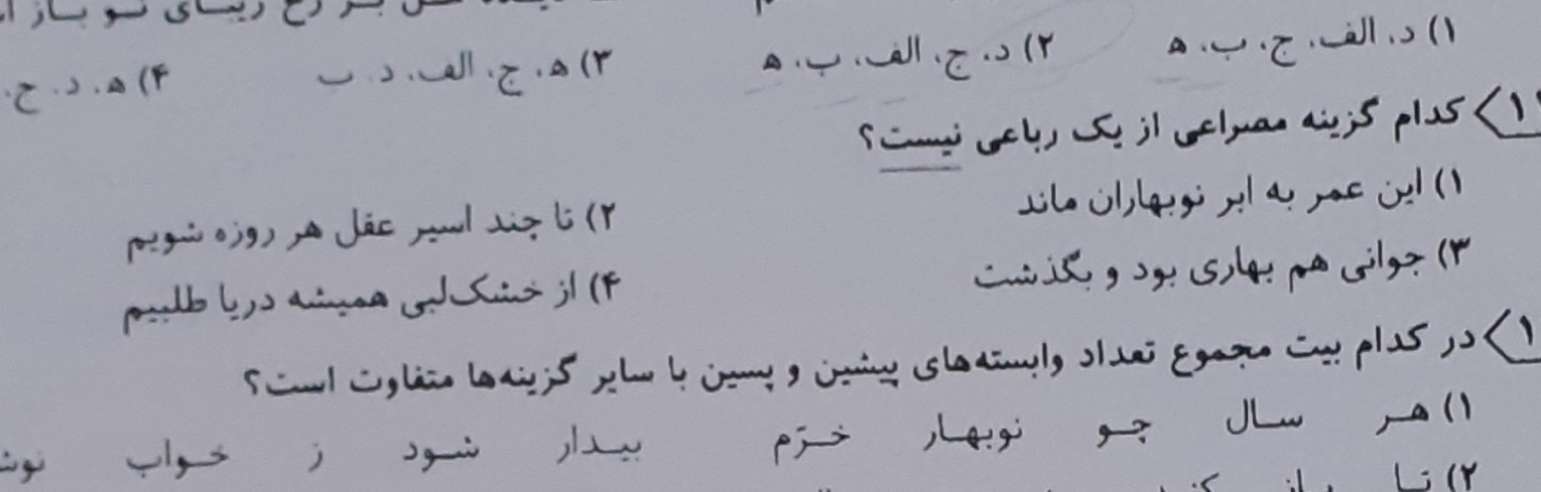 ۱) د. الف. ج. ب. ه ۲) د. ج. الف. ب. ه ۳) ه. ج. الف. د. ب ۴) ه. د. ج.
کدام گزینه مصراعی از یک رباعی نیست؟
۱) این عمر به ابر نوبهاران ماند ۲) تا چند اسیر عقل هر روزه شویم
۳) جوانی هم بهاری بود و بگذشت ۴) از خشک‌لبی همیشه دریا طلبیم
در کدام بیت مجموع تعداد وابسته‌های پیشین و پسین با سایر گزینه‌ها متفاوت است؟
۱) هر سال چو نوبهار خرّم بیدار شود ز خواب
۲)